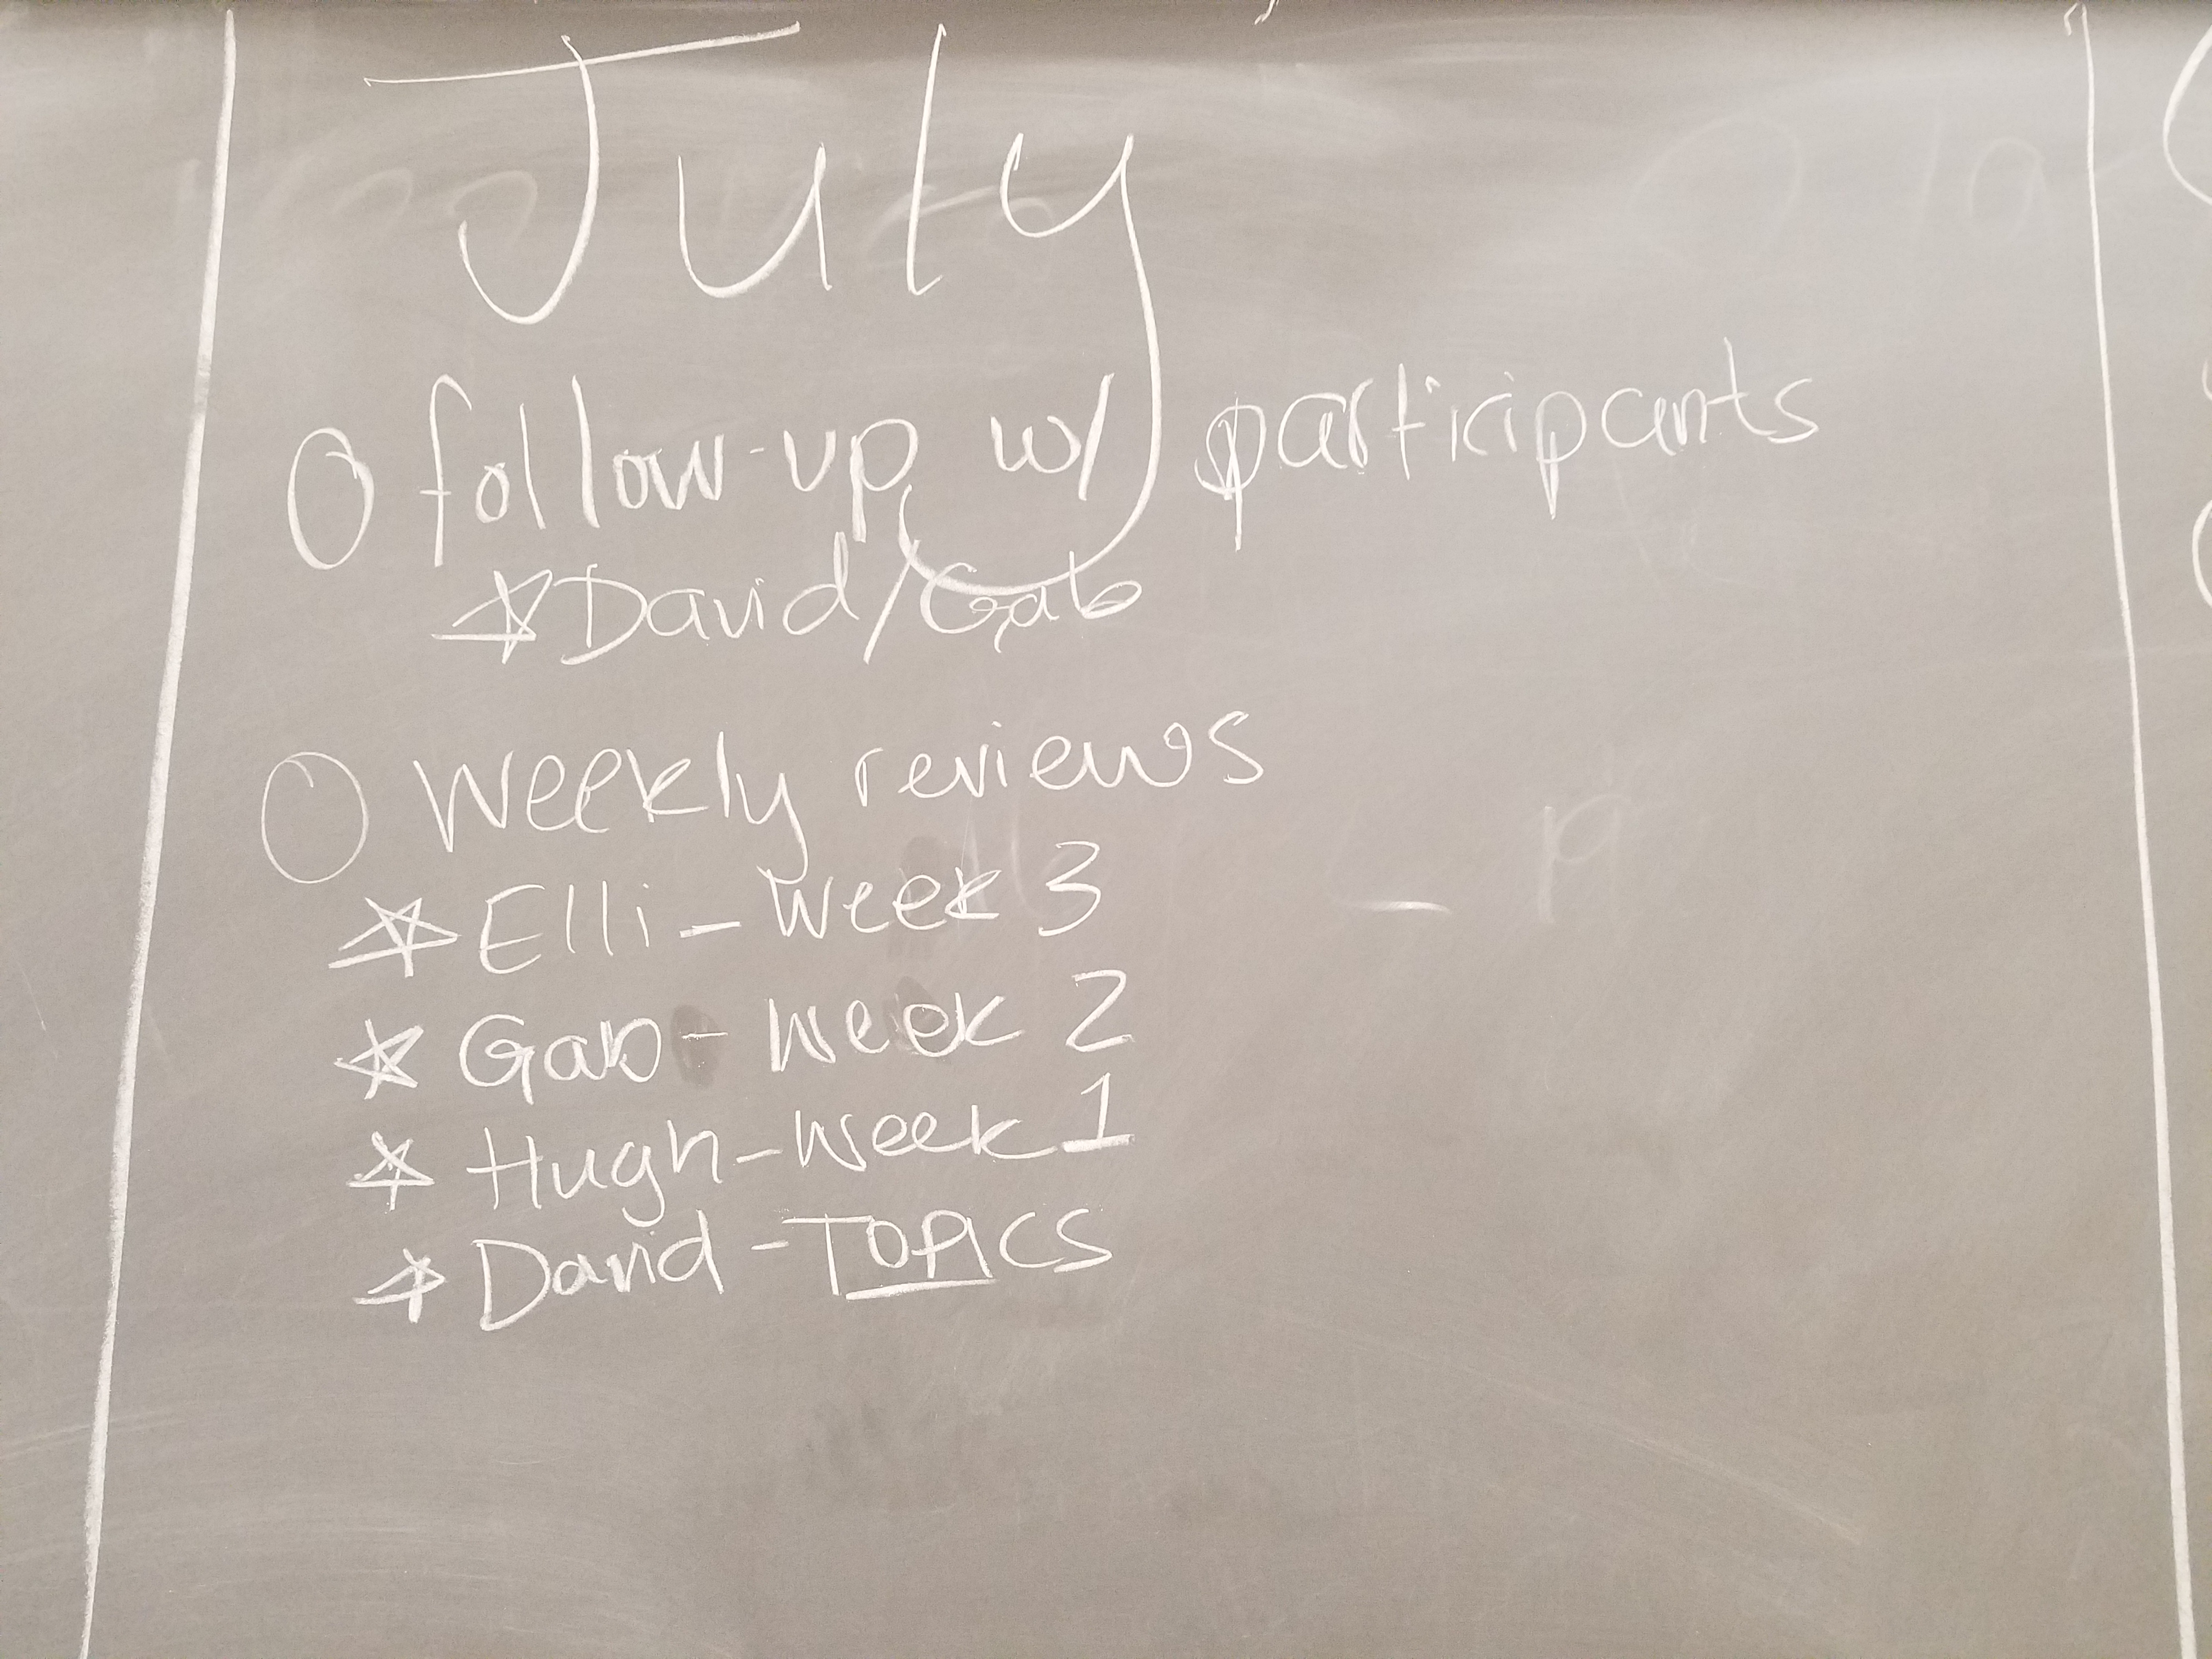 July
follow-up w/ participants
David/Gab
Weekly reviews
Elli - Week 3
Gab - Week 2
Hugh - Week 1
David - TOPICS